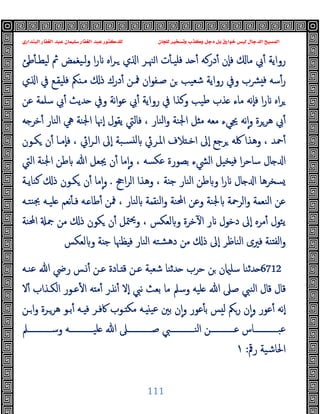 المسيح الدجال ليس خوارق بل دجل وكذب وتسخير للجان للدكتور عبد الغفار سليمان عبد الغفار البنداري
رواية أبي مالك فإن أدركه أحد فليأت النهر الذي يراه نارا وليغمض ثم ليطأطئ
رأسه فيشرب وفي رواية شعيب بن صفوان فمن أدرك ذلك منكم فليقع في الذي
يراه نارا فإنه ماء عذب طيب وكذا في رواية أبي عوانة وفي حديث أبي سلمة عن
أبي هريرة وإنه يجيء معه مثل الجنة والنار ، فالتي يقول إنها الجنة هي النار أخرجه
أحمد ، وهذا كله يرجع إلى اختلاف المرئي بالنسبة إلى الرائي ، فإما أن يكون
الدجال ساحرا فيخيل الشيء بصورة عكسه ، وإما أن يجعل الله باطن الجنة التي
يسخرها الدجال نارا وباطن النار جنة ، وهذا الراجح . وإما أن يكون ذلك كناية
عن النعمة والرحمة بالجنة وعن المحنة والنقمة بالنار ، فمن أطاعه فأنعم عليه بجنته
يئول أمره إلى دخول نار الآخرة وبالعكس ، ويحتمل أن يكون ذلك من جملة المحنة
والفتنة فيرى الناظر إلى ذلك من دهشته النار فيظنها جنة وبالعكس
6712حدثنا سليمان بن حرب حدثنا شعبة عن قتادة عن أنس رضي الله عنه
قال قال النبي صلى الله عليه وسلم ما بعث نبي إلا أنذر أمته الأعور الكذاب ألا
إنه أعور وإن ربكم ليس بأعور وإن بين عينيه مكتوب كافر فيه أبو هريرة وابن
عباس عن النبي صلى الله عليه وسلم
الحاشية رقم: ١
111